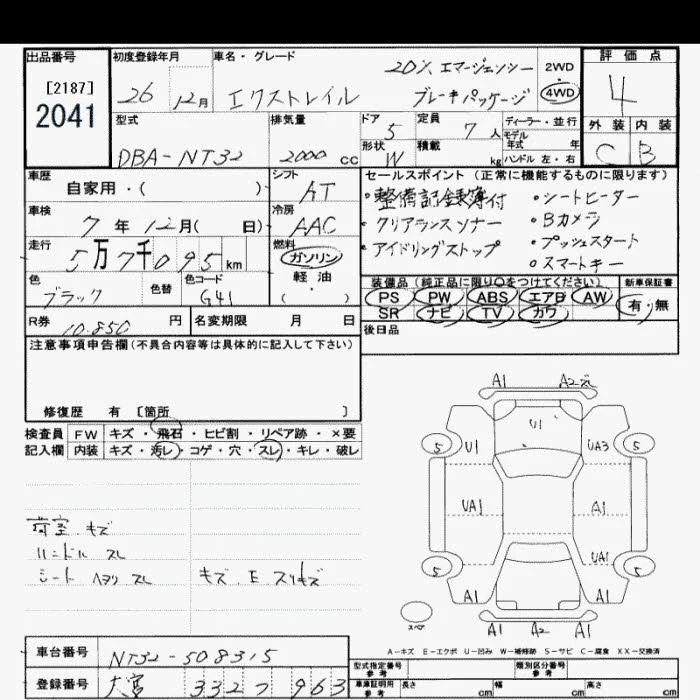 出品番号 初度登録年月 車名・グレード 評価点
[2187] 26 12月 エクストレイル 20X エマージェンシー 2WD・4WD 4
2041 ブレーキパッケージ
型式 排気量 ドア 定員 ディーラー・並行 外装 内装
DBA-NT32 2000 cc 5 7人 モデル年式 年 C B
形状 積載
W kg ハンドル 左・右
車歴 シフト セールスポイント(正常に機能するものに限ります)
自家用・( ) AT ・整備記録簿付 ・シートヒーター
車検 冷房 ・クリアランスソナー ・Bカメラ
7年12月( 日) AAC ・アイドリングストップ ・プッシュスタート
走行 燃料 ・スマートキー
5万7千095km ガソリン
色 色替 色コード 軽・油 装備品(純正品に限り○をつけてください) 新車保証書
ブラック G41 ( ) PS PW ABS エアB AW 有・無
SR ナビ TV カワ
R券 10.850円 名変期限 月 日 後日品
注意事項申告欄(不具合内容等は具体的に記入して下さい)
修復歴 有 〔箇所 〕
検査員 FW キズ・飛石・ヒビ割・リペア跡・×要
記入欄 内装 キズ・汚レ・コゲ・穴・スレ・キレ・破レ
荷室 キズ
ハンドル スレ
シート ヘタリ スレ キズ E スリキズ
A1 A2
U1
5 U1 UA3 5
UA1 A1
UA1
5 5
A1 A1
スペア A1 A2 A1
A-キズ E-エクボ U-凹み W-補修跡 S-サビ C-腐食 XX-交換済
車台番号 NT32-508315
型式指定番号 参考 類別区分番号 参考
登録番号 大宮 332 963
車庫証明用 参考 長さ cm 幅 cm 高さ cm